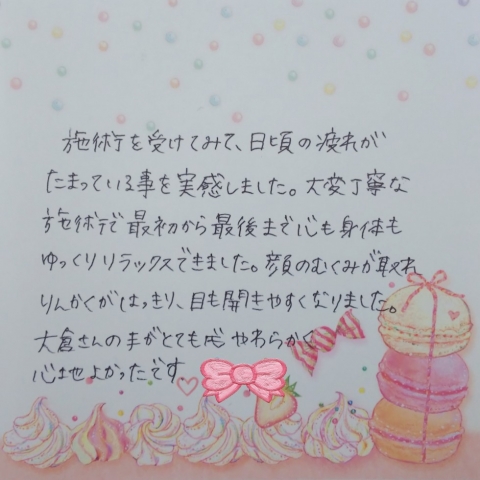 施術を受けてみて、日頃の疲れが
たまっている事を実感しました。大変丁寧な
施術で最初から最後まで心も身体も
ゆっくりリラックスできました。顔のむくみが取れ
りんかくがはっきり、目も開きやすくなりました。
大倉さんの手がとても やわらかく
心地よかったです